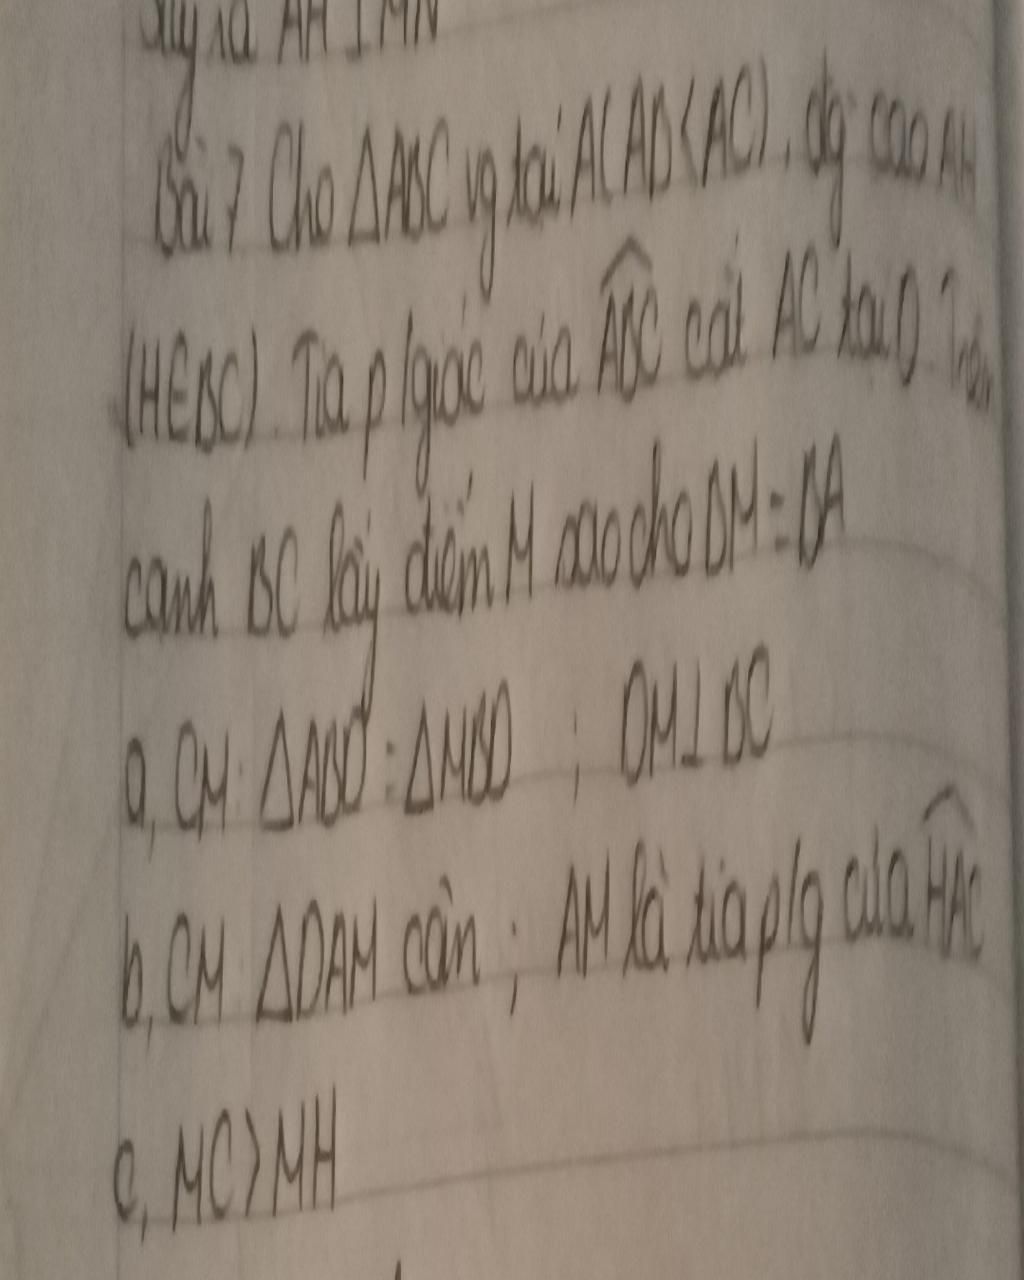 Suy ra AH ⊥ MN
Bài 7 Cho ΔABC vg tại A(AB<AC), đg cao AH
(H∈BC). Tia p/giác của ABC cắt AC tại D. Trên
cạnh BC lấy điểm M sao cho BM = BA
a, CM: ΔABD = ΔMBD ; DM⊥BC
b, CM ΔDAM cân ; AM là tia p/g của HAC
c, MC>MH